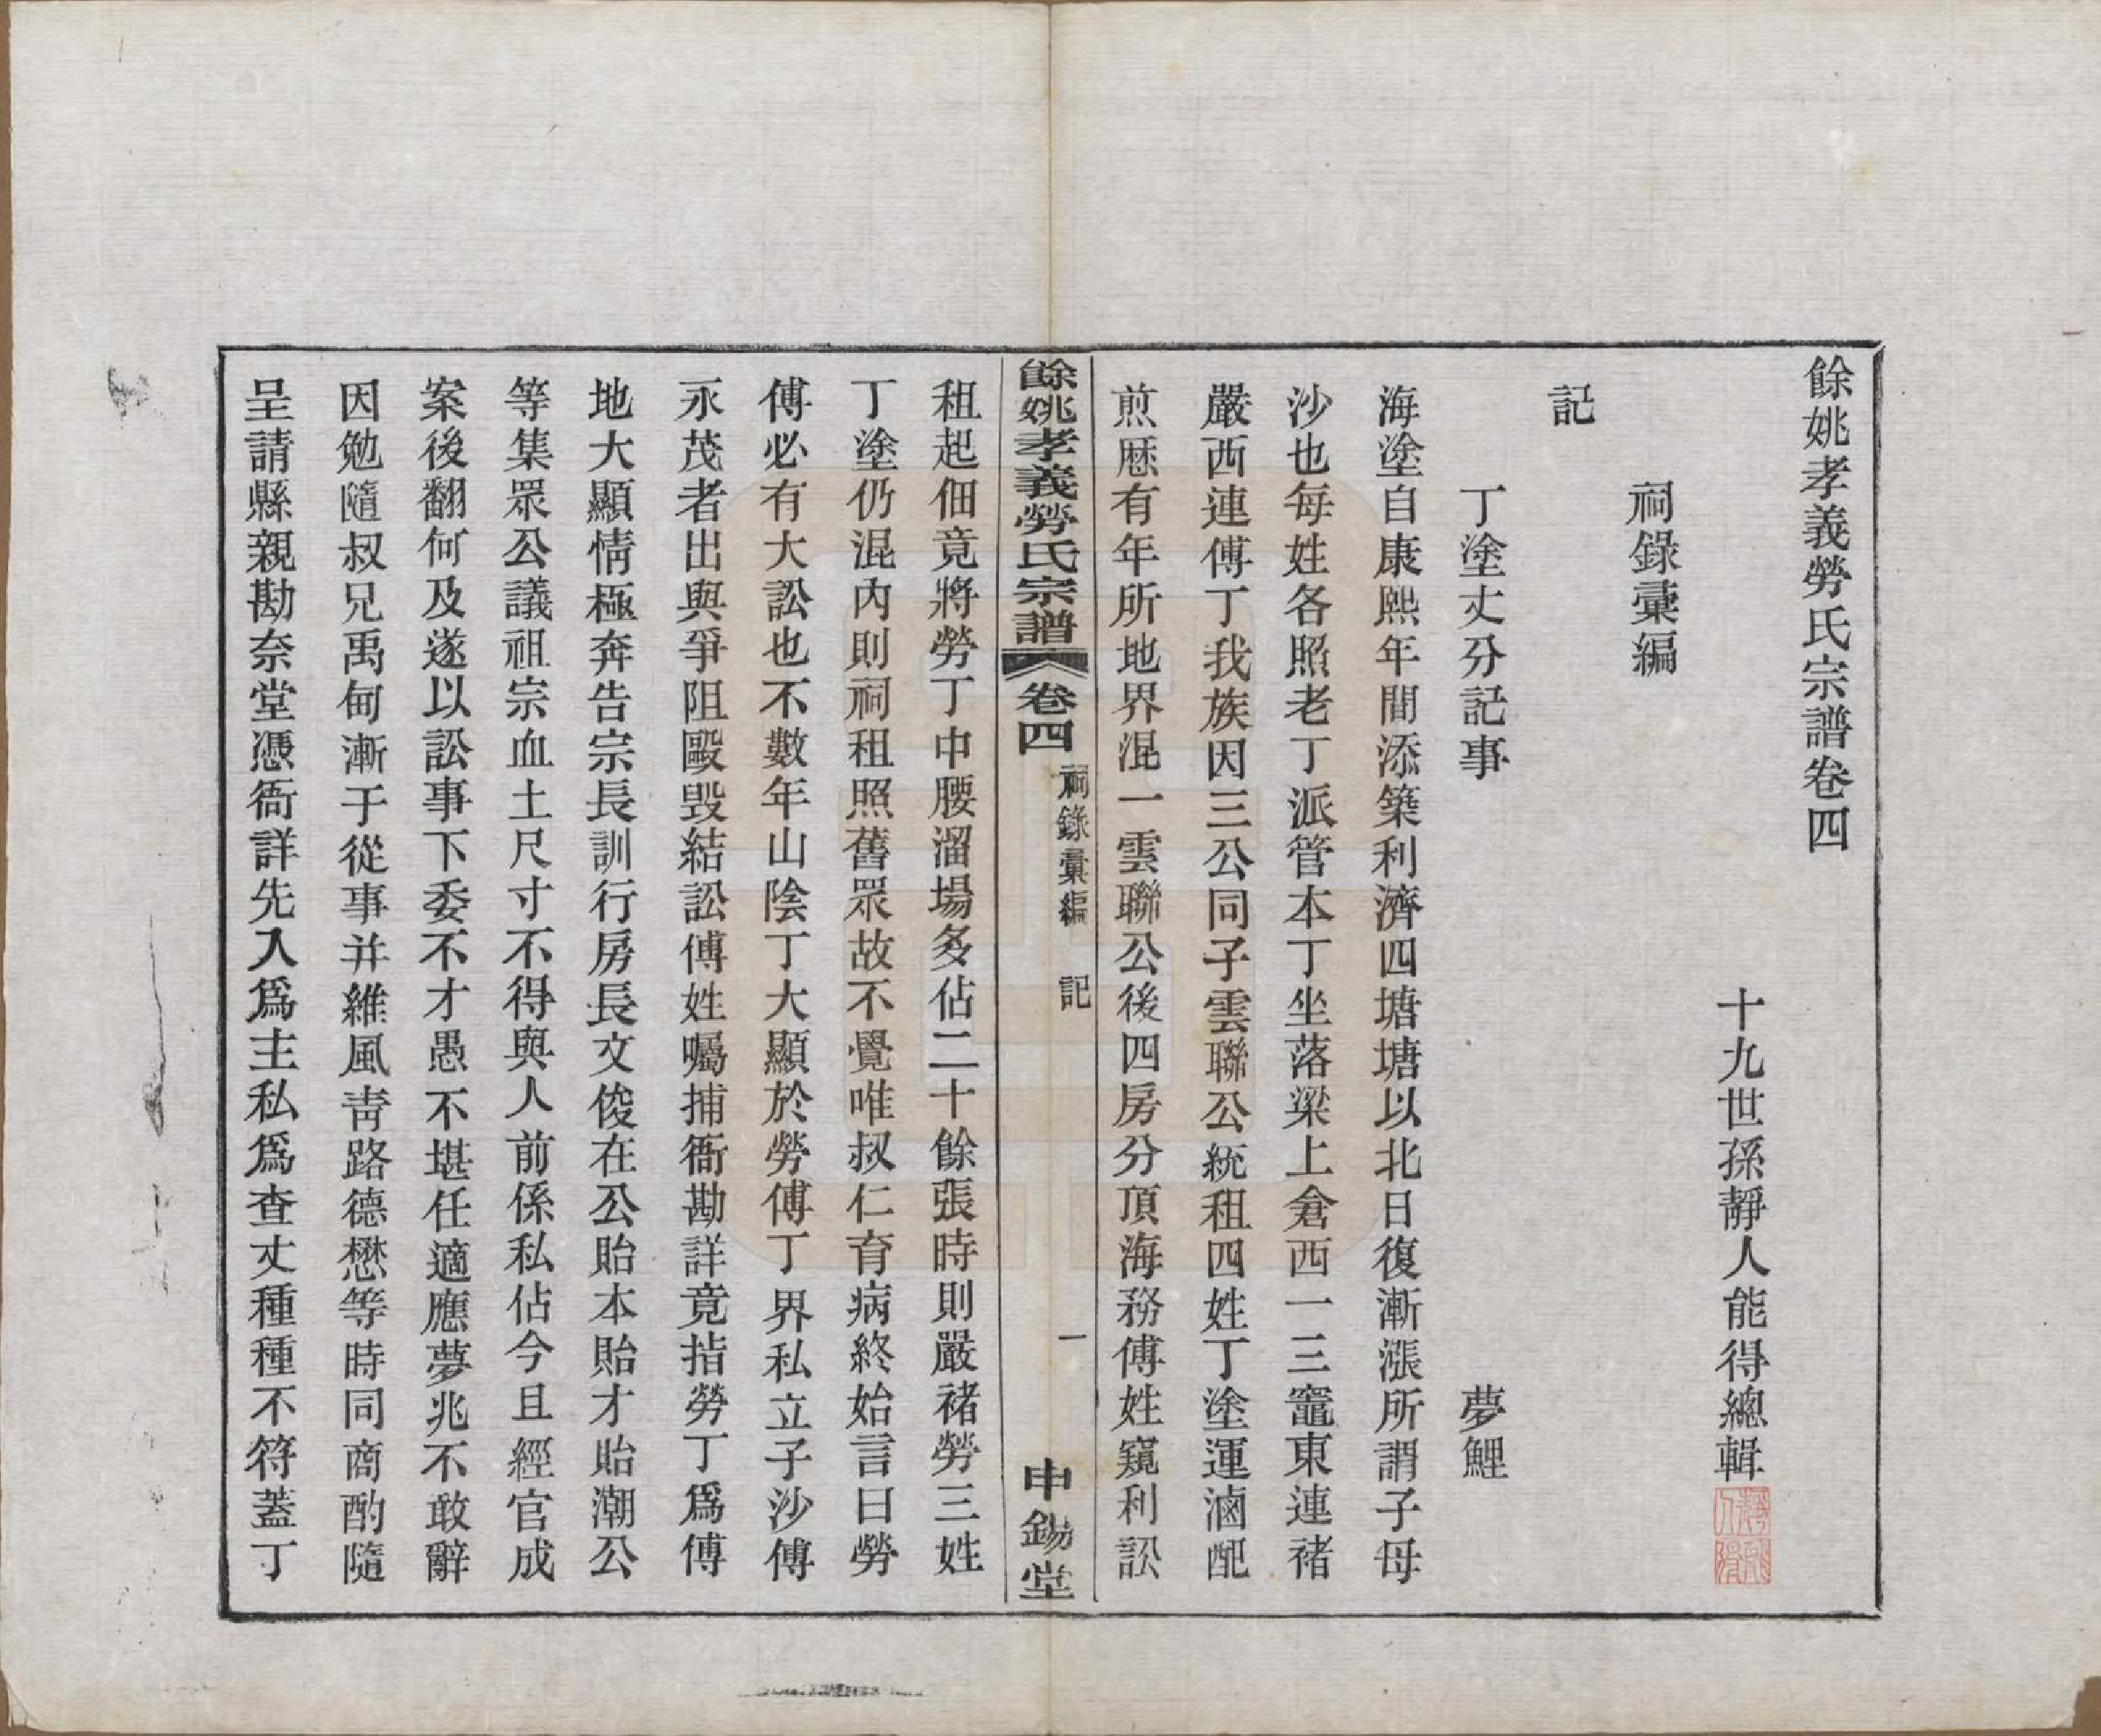 餘姚孝義勞氏宗譜卷四
十九世孫靜人能得總輯
祠錄彙編
記
丁塗丈分記事　夢鯉
海塗自康熙年間添築利濟四塘塘以北日復漸漲所謂子母
沙也每姓各照老丁派管本丁坐落梁上倉西一三竈東連褚
嚴西連傅丁我族因三公同子雲聯公統租四姓丁塗運滷配
煎歷有年所地界混一雲聯公後四房分頂海務傅姓窺利訟
餘姚孝義勞氏宗譜 卷四 祠錄彙編 記 一 申錫堂
租起佃竟將勞丁中腰溜場多佔二十餘張時則嚴褚勞三姓
丁塗仍混內則祠租照舊眾故不覺唯叔仁育病終始言曰勞
傅必有大訟也不數年山陰丁大顯於勞傅丁界私立子沙傅
永茂者出與爭阻毆毀結訟傅姓囑捕衙勘詳竟指勞丁為傅
地大顯情極奔告宗長訓行房長文俊在公貽本貽才貽潮公
等集眾公議祖宗血土尺寸不得與人前係私佔今且經官成
案後翻何及遂以訟事下委不才愚不堪任適應夢兆不敢辭
因勉隨叔兄禹甸漸于從事并維風靑路德懋等時同商酌隨
呈請縣親勘奈堂憑衙詳先入爲主私爲查丈種種不符蓋丁